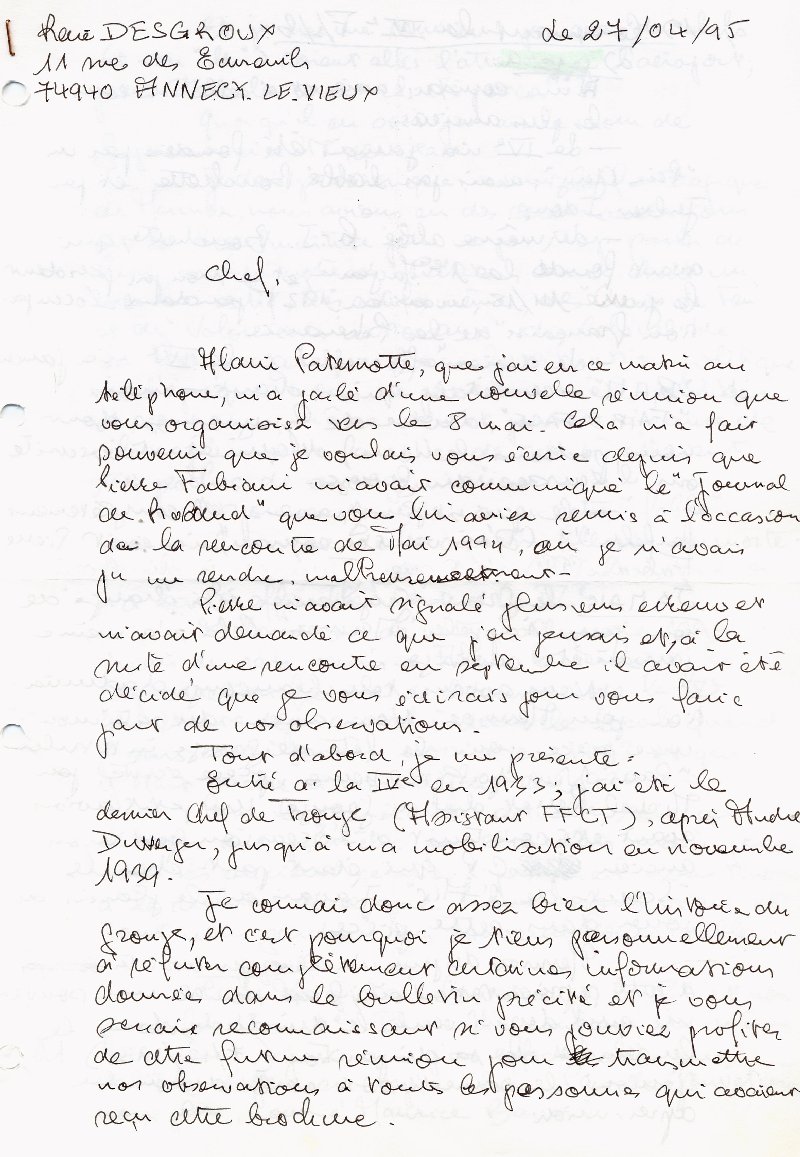 René DESGROUX Le 27/04/95
11 rue des Ecureuils
74940 ANNECY.LE.VIEUX
Chef,
Alain Paternotte, que j'ai eu ce matin au
téléphone, m'a parlé d'une nouvelle réunion que
vous organisiez vers le 8 mai. Cela m'a fait
souvenir que je voulais vous écrire depuis que
Pierre Fabiani m'avait communiqué le "Journal
de Roland" que vous lui aviez remis à l'occasion
de la rencontre de Mai 1994, où je n'avais
pu me rendre, malheureusement.
Pierre m'avait signalé plusieurs erreurs et
m'avait demandé ce que j'en pensais et, à la
suite d'une rencontre en septembre il avait été
décidé que je vous écrirais pour vous faire
part de nos observations.
Tout d'abord, je me présente :
Entré à la IVe en 1933, j'ai été le
dernier Chef de Troupe (Assistant FFCT), après André
Duverger, jusqu'à ma mobilisation en novembre
1939.
Je connais donc assez bien l'histoire du
groupe, et c'est pourquoi je tiens personnellement
à réfuter complètement certaines informations
données dans le bulletin précité et je vous
serais reconnaissant si vous pouviez profiter
de cette future réunion pour transmettre
nos observations à toutes les personnes qui avaient
reçu cette brochure.